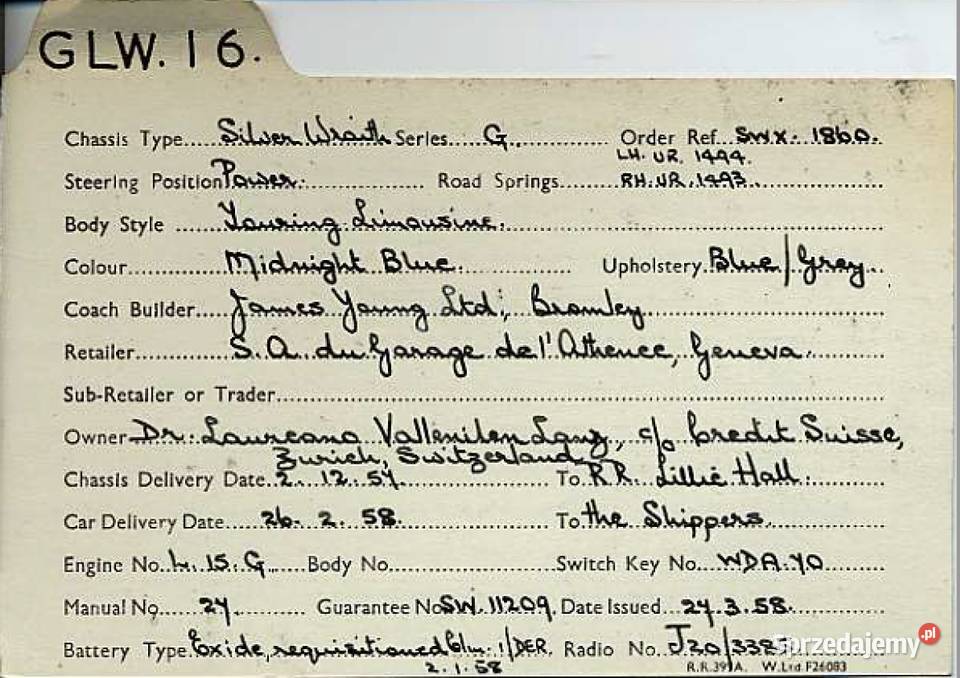 GLW. 16.
Chassis Type Silver Wraith Series G. Order Ref. SWX. 1860.
LH. UR. 1494.
Steering Position Power. Road Springs RH. UR. 1493.
Body Style Touring Limousine.
Colour Midnight Blue. Upholstery Blue/Grey.
Coach Builder James Young Ltd., Bromley.
Retailer S.A. du Garage de l'Athenee, Geneva.
Sub-Retailer or Trader
Owner Dr. Laureano Vallenilen Lanz, c/o Credit Suisse,
Zurich, Switzerland
Chassis Delivery Date 2. 12. 57. To R.R. Lillie Hall.
Car Delivery Date 26. 2. 58. To the Shippers.
Engine No. L. 15. G. Body No. Switch Key No. WDA. 70
Manual No. 27. Guarantee No. SW. 11209. Date Issued 27. 3. 58.
Battery Type Exide, requisitioned 1/DER. Radio No. J20/
2. 1. 58
R.R. 391A. W.Ltd. F26083
Sprzedajemy.pl